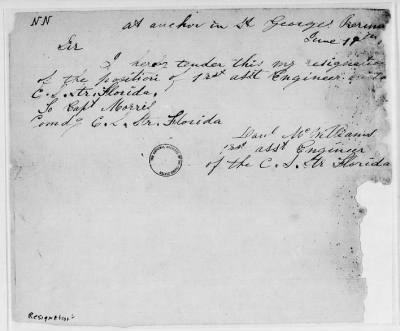 NN
at anchor in St Georges
June 19th
Sir
I here tender this my resignat
of the position of 1rst asst Engineer
C. S. Str. Florida.
To Capt Morris
Comdg C. S. Str. Florida
Danl McWilliams
1rst asst Engineer
of the C. S. Str Florida
Resignation